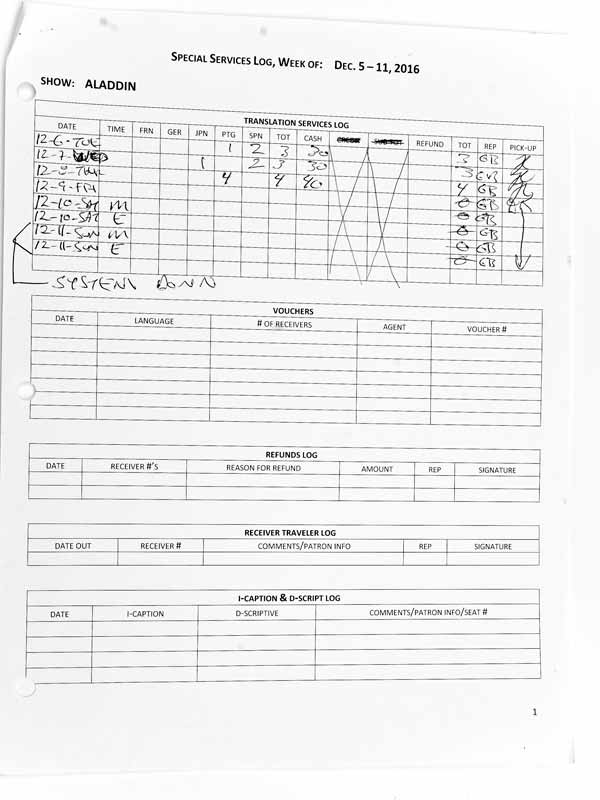 SPECIAL SERVICES LOG, WEEK OF: DEC. 5 – 11, 2016
SHOW: ALADDIN
TRANSLATION SERVICES LOG
DATE TIME FRN GER JPN PTG SPN TOT CASH CREDIT SUB TOT REFUND TOT REP PICK-UP
12-6-TUE 1 2 3 30 3 GB
12-7-WED 1 2 3 30 3 GB
12-8-THU 4 4 40 4 GB
12-9-FRI 0 GB
12-10-SAT M 0 GB
12-10-SAT E 0 GB
12-11-SUN M 0 GB
12-11-SUN E 0 GB
SYSTEM DOWN
VOUCHERS
DATE LANGUAGE # OF RECEIVERS AGENT VOUCHER #
REFUNDS LOG
DATE RECEIVER #'S REASON FOR REFUND AMOUNT REP SIGNATURE
RECEIVER TRAVELER LOG
DATE OUT RECEIVER # COMMENTS/PATRON INFO REP SIGNATURE
I-CAPTION & D-SCRIPT LOG
DATE I-CAPTION D-SCRIPTIVE COMMENTS/PATRON INFO/SEAT #
1